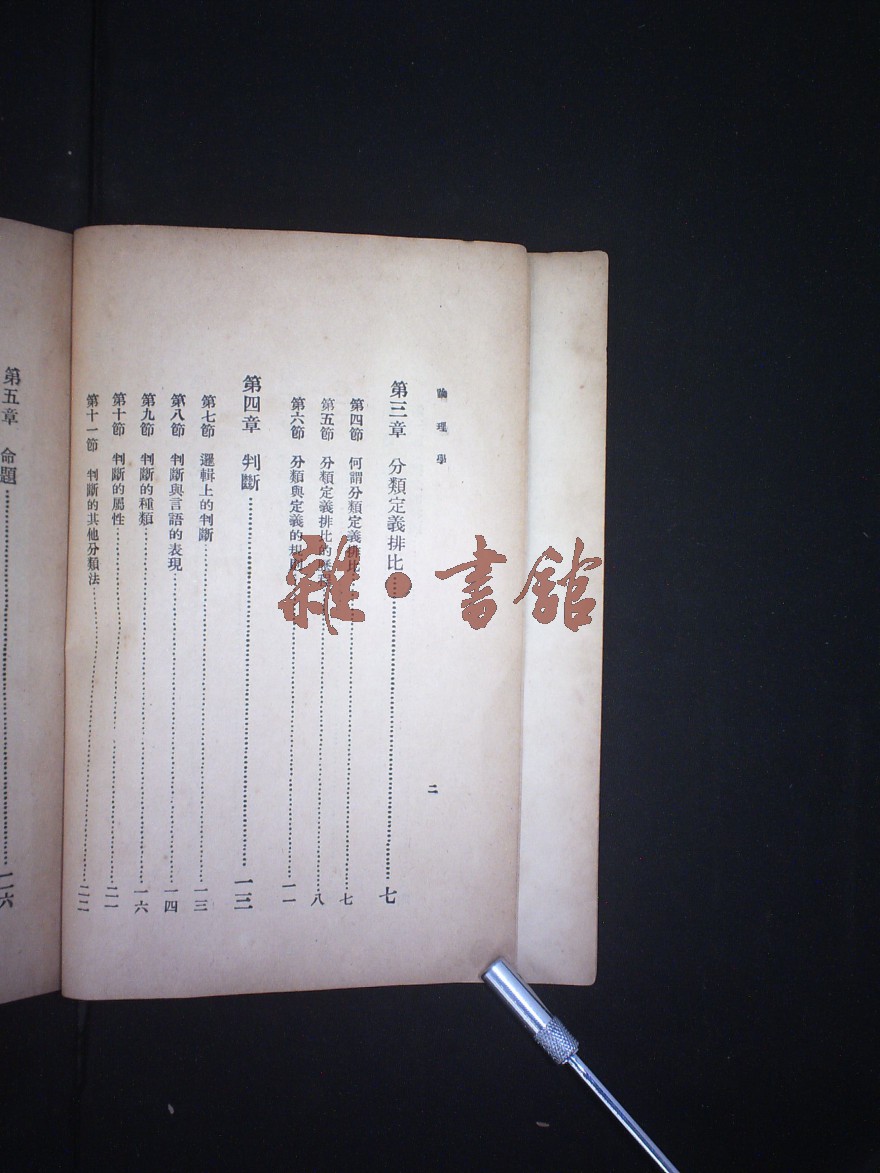 論理學
二
第三章 分類定義排比……七
第四節 何謂分類定義排比……七
第五節 分類定義排比的歷程……八
第六節 分類與定義的規則……一一
第四章 判斷……一三
第七節 邏輯上的判斷……一三
第八節 判斷與言語的表現……一四
第九節 判斷的種類……一六
第十節 判斷的屬性……二一
第十一節 判斷的其他分類法……二二
第五章 命題……二六
雜·書館